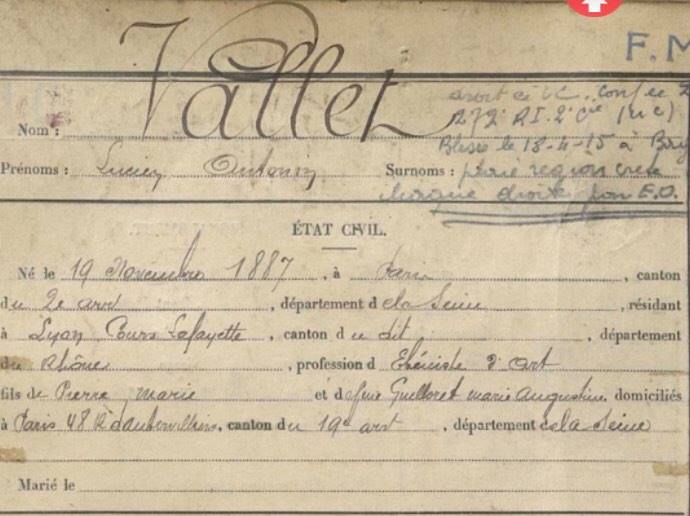 F. M
Vallet
Nom :
272e R.I. 2e Cie
Blessé le 18-4-15 à
Prénoms : Lucien Antonin Surnoms : plaie region
droite par E.O.
ÉTAT CIVIL.
Né le 19 Novembre 1887, à Paris, canton
du 2e arrt, département de la Seine, résidant
à Lyon Cours Lafayette, canton du dit, département
du Rhône, profession d'Ebéniste d'art
fils de Pierre marie et de feue Guelloret marie Augustine, domiciliés
à Paris 48 R d'aubervilliers, canton du 19e arrt, département de la Seine
Marié le